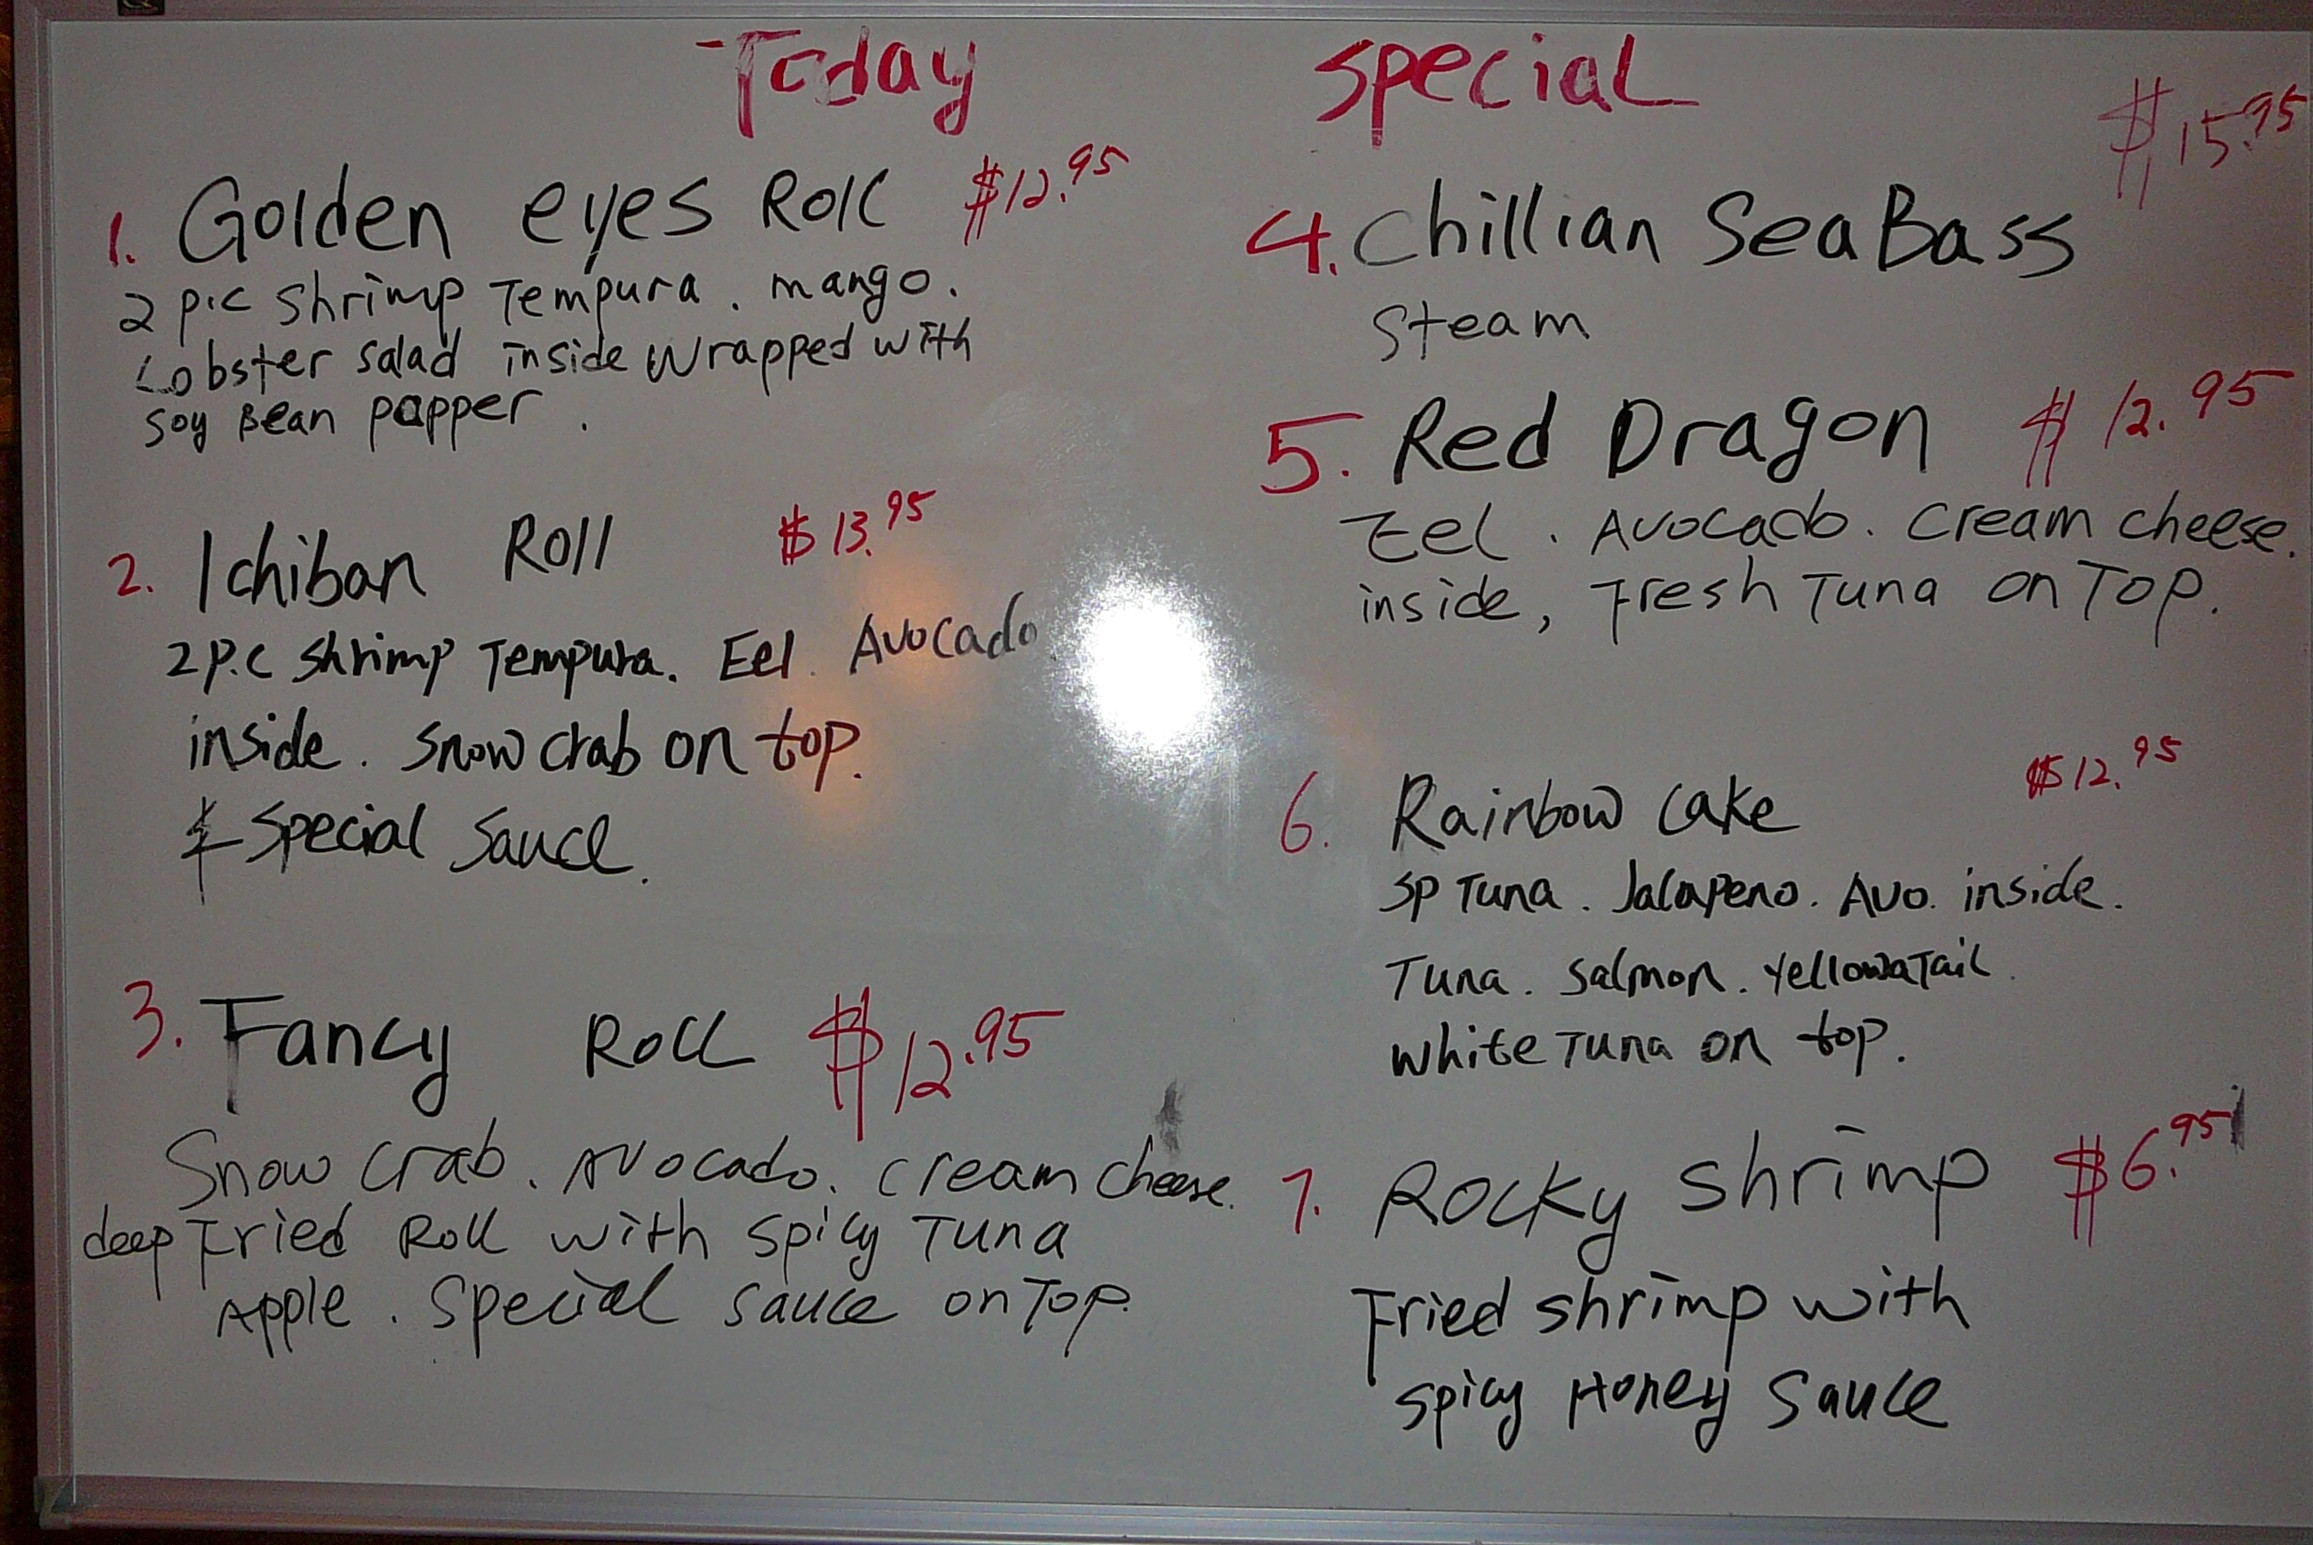 Today Special
1. Golden eyes Roll $12.95
2 p.c shrimp Tempura. mango.
Lobster salad inside wrapped with
soy Bean papper.
2. Ichiban Roll $13.95
2P.C shrimp Tempura. Eel. Avocado
inside. snow crab on top.
& special sauce.
3. Fancy Roll $12.95
Snow crab. Avocado. cream cheese.
deep Fried Roll with spicy Tuna
Apple. special sauce on Top.
4. Chillian Sea Bass $15.95
steam
5. Red Dragon $12.95
Eel. Avocado. cream cheese.
inside, Fresh Tuna on Top.
6. Rainbow cake $12.95
sp Tuna. Jalapeno. Avo. inside.
Tuna. salmon. yellowaTail.
white Tuna on top.
7. Rocky shrimp $6.95
Fried shrimp with
spicy Honey sauce